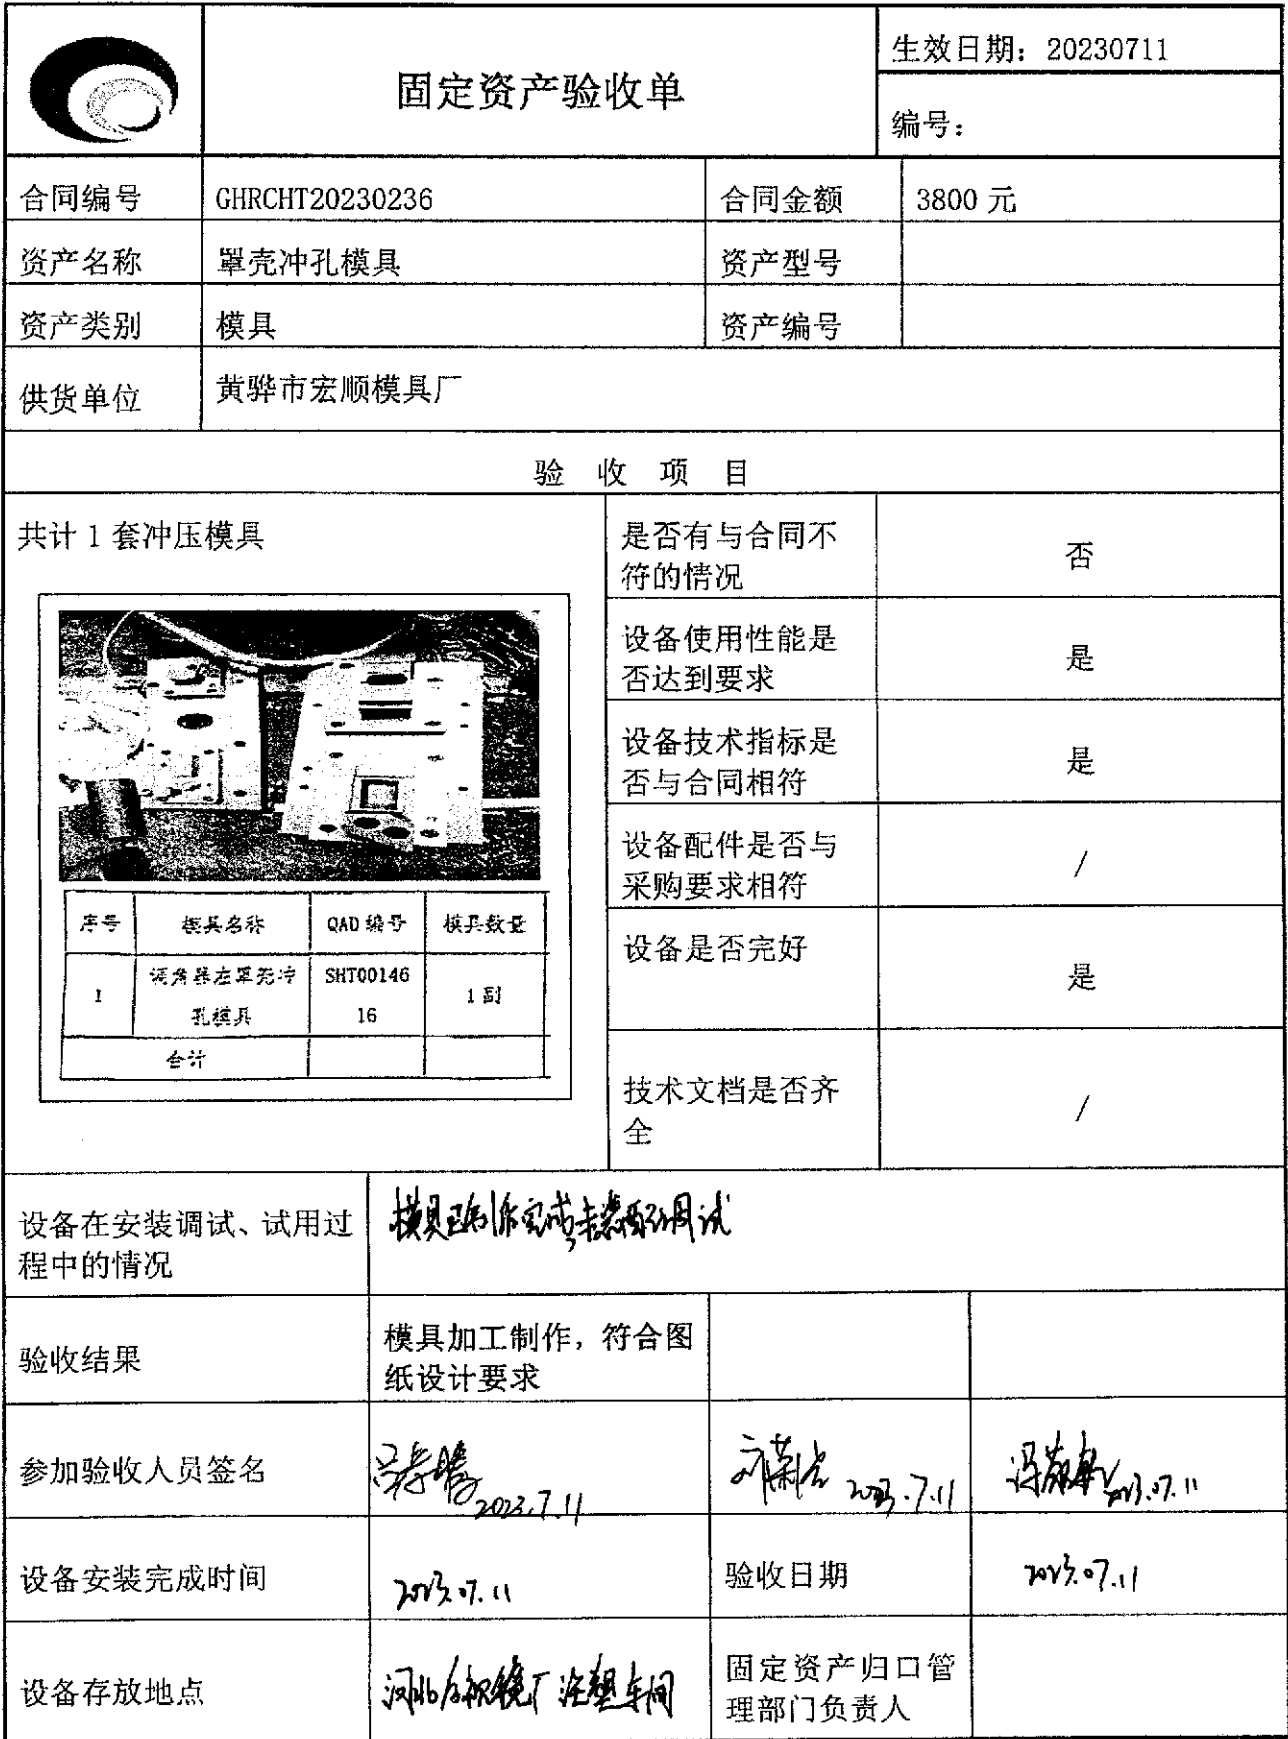 固定资产验收单
生效日期：20230711
编号：
合同编号 GHRCHT20230236 合同金额 3800 元
资产名称 罩壳冲孔模具 资产型号
资产类别 模具 资产编号
供货单位 黄骅市宏顺模具厂
验 收 项 目
共计 1 套冲压模具
序号 模具名称 QAD 编号 模具数量
1 调角器左罩壳冲 SHT00146 1 副
孔模具 16
合计
是否有与合同不
符的情况
否
设备使用性能是
否达到要求
是
设备技术指标是
否与合同相符
是
设备配件是否与
采购要求相符
/
设备是否完好
是
技术文档是否齐
全
/
设备在安装调试、试用过
程中的情况
模具已制作完成,未装配调试
验收结果
模具加工制作，符合图
纸设计要求
参加验收人员签名
2023.7.11
2023.7.11
2023.07.11
设备安装完成时间 2023.07.11 验收日期 2023.07.11
设备存放地点 河北后视镜厂注塑车间
固定资产归口管
理部门负责人